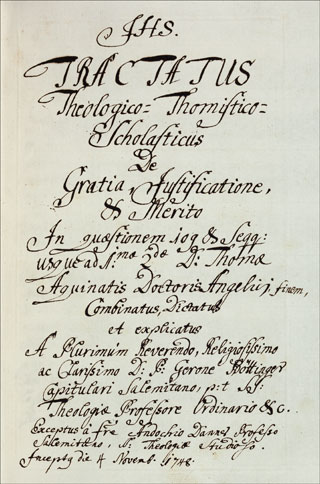 JHS.
TRACTATUS
Theologico-Thomistico-
Scholasticus
De
Gratia, Justificatione,
& Merito
In quæstionem 109 & Segg:
usque ad 1.mæ 2dæ D: Thomæ
Aquinatis Doctoris Angelici finem,
Combinatus, Dictatus
et explicatus
A Plurimùm Reverendo, Religiosissimo
ac Clarissimo D: P: Gerone
Capitulari Salemitano, p:t SS:
Theologiæ Professore Ordinario &c.
Exceptus à Fre Andochio Danner Professo
Salemitano, SS: Theologiæ Studioso.
Inceptg die 4 Novemb: 1748.